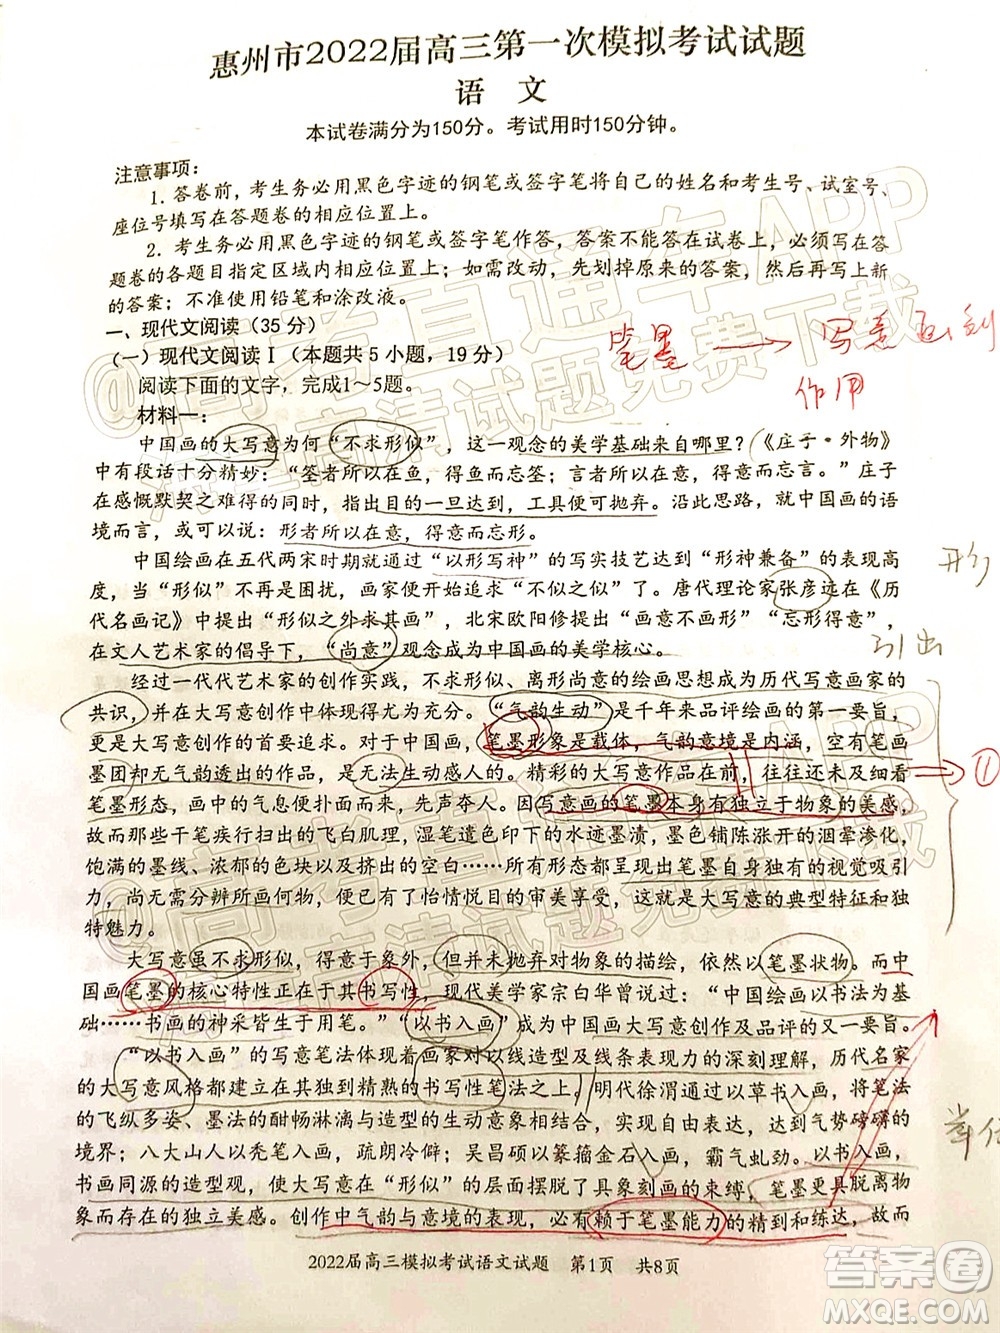 惠州市2022届高三第一次模拟考试试题
语 文
本试卷满分为150分。考试用时150分钟。
注意事项：
1. 答卷前，考生务必用黑色字迹的钢笔或签字笔将自己的姓名和考生号、试室号、
座位号填写在答题卷的相应位置上。
2. 考生务必用黑色字迹的钢笔或签字笔作答，答案不能答在试卷上，必须写在答
题卷的各题目指定区域内相应位置上；如需改动，先划掉原来的答案，然后再写上新
的答案；不准使用铅笔和涂改液。
一、现代文阅读（35 分）
（一）现代文阅读 I（本题共 5 小题，19 分）
阅读下面的文字，完成1～5题。
笔墨 → 写意画到
作用
材料一：
中国画的大写意为何“不求形似”，这一观念的美学基础来自哪里？《庄子·外物》
中有段话十分精妙：“筌者所以在鱼，得鱼而忘筌；言者所以在意，得意而忘言。”庄子
在感慨默契之难得的同时，指出目的一旦达到，工具便可抛弃。沿此思路，就中国画的语
境而言，或可以说：形者所以在意，得意而忘形。
中国绘画在五代两宋时期就通过“以形写神”的写实技艺达到“形神兼备”的表现高
度，当“形似”不再是困扰，画家们开始追求“不似之似”了。唐代理论家张彦远在《历
代名画记》中提出“形似之外求其画”，北宋欧阳修提出“画意不画形”“忘形得意”，
在文人艺术家的倡导下，“尚意”观念成为中国画的美学核心。
引出
经过一代代艺术家的创作实践，不求形似、离形尚意的绘画思想成为历代写意画家的
共识，并在大写意创作中体现得尤为充分。“气韵生动”是千年来品评绘画的第一要旨，
更是大写意创作的首要追求。对于中国画，笔墨形象是载体，气韵意境是内涵，空有笔画
墨团却无气韵透出的作品，是无法生动感人的。精彩的大写意作品在前，往往还未及细看
①
笔墨形态，画中的气息便扑面而来，先声夺人。因写意画的笔墨本身有独立于物象的美感，
故而那些干笔疾行扫出的飞白肌理，湿笔遗色印下的水迹墨渍，墨色铺陈涨开的洇晕渗化，
饱满的墨线、浓郁的色块以及挤出的空白……所有形态都呈现出笔墨自身独有的视觉吸引
力，尚无需分辨所画何物，便已有了怡情悦目的审美享受，这就是大写意的典型特征和独
特魅力。
大写意虽不求形似，得意于象外，但并未抛弃对物象的描绘，依然以笔墨状物。而中
国画笔墨的核心特性正在于其书写性，现代美学家宗白华曾说过：“中国绘画以书法为基
础……书画的神采皆生于用笔。”“以书入画”成为中国画大写意创作及品评的又一要旨。
“以书入画”的写意笔法体现着画家对以线造型及线条表现力的深刻理解，历代名家
的大写意风格都建立在其独到精熟的书写性笔法之上。明代徐渭通过以草书入画，将笔法
的飞纵多姿、墨法的酣畅淋漓与造型的生动意象有机结合，实现自由表达，达到气势磅礴的
笔墨境界；八大山人以秃笔入画，疏朗冷峻；吴昌硕以篆籀金石入画，霸气虬劲。以书入画，
书画同源的造型观，使大写意在“形似”的层面摆脱了具象刻画的束缚，笔墨更具脱离物
象而存在的独立美感。创作中气韵与意境的表现，必有赖于笔墨能力的精到和练达，故而
2022届高三模拟考试语文试题 第1页 共8页
@高考直通车APP
答案圈
MXQE.COM